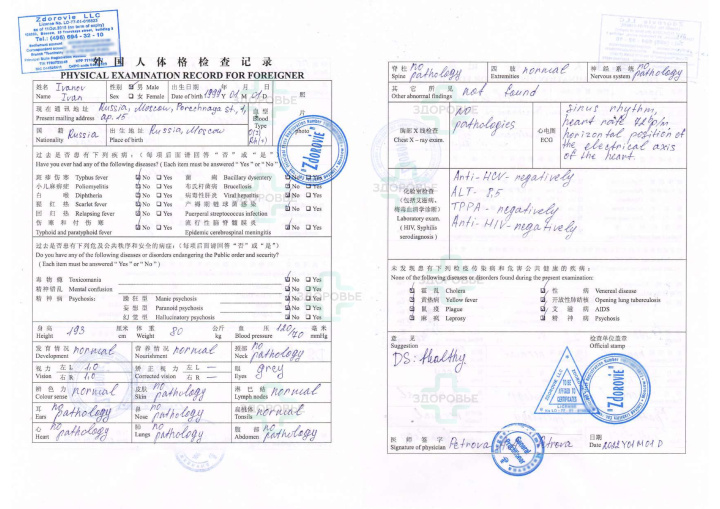 Zdorovie LLC
Tel.: (495) 594 - 32 - 10
外 国 人 体 格 检 查 记 录
PHYSICAL EXAMINATION RECORD FOR FOREIGNER
姓名 Ivanov 性别 男 Male 出生日期 年 月 日
Name Ivan Sex 女 Female Date of birth 1999 Y 01 M 01 D
现在通讯地址 Russia, Moscow, Porechnaya st., 4, 血型
Present mailing address ap. 15. Blood Type
国 籍 Russia 出生地 Russia, Moscow
Nationality Place of birth
照
片
photo
过去是否患有下列疾病：（每项后面请回答“否”或“是”）
Have you ever had any of the following diseases? ( Each item must be answered “ Yes ” or “ No ” )
斑疹伤寒 Typhus fever No Yes 菌 痢 Bacillary dysentery No Yes
小儿麻痹症 Poliomyelitis No Yes 布氏杆菌病 Brucellosis No Yes
白 喉 Diphtheria No Yes 病毒性肝炎 Viral hepatitis No Yes
猩 红 热 Scarlet fever No Yes 产褥期链球菌感染
回 归 热 Relapsing fever No Yes Puerperal streptococcus infection No Yes
伤寒和付伤寒 流行性脑脊髓膜炎
Typhoid and paratyphoid fever No Yes Epidemic cerebrospinal meningitis No Yes
过去是否患有下列危及公共秩序和安全的病症：（每项后面请回答“否”或“是”）
Do you have any of the following diseases or disorders endangering the Public order and security?
( Each item must be answered “ Yes ” or “ No ” )
毒 物 瘾 Toxicomania No Yes
精神错乱 Mental confusion No Yes
精 神 病 Psychosis: 躁狂型 Manic psychosis No Yes
妄想型 Paranoid psychosis No Yes
幻觉型 Hallucinatory psychosis No Yes
身高 193 厘米 体重 80 公斤 血压 120/70 毫米
Height cm Weight kg Blood pressure mmHg
发育情况 normal 营养情况 normal 颈部 no
Development Nourishment Neck pathology
视力 左 L 1.0 矫正视力 左 L — 眼 grey
Vision 右 R 1.0 Corrected vision 右 R — Eyes
辨色力 normal 皮肤 no 淋巴结 normal
Colour sense Skin pathology Lymph nodes
耳 no 鼻 no 扁桃体 normal
Ears pathology Nose pathology Tonsils
心 no 肺 no 腹部 no
Heart pathology Lungs pathology Abdomen pathology
脊柱 no 四肢 normal 神经系统 no
Spine pathology Extremities Nervous system pathology
其它所见 not found
Other abnormal findings
胸部 X 线检查 no
Chest X – ray exam. pathologies
心电图
ECG
Sinus rhythm,
heart rate 72 bpm,
horizontal position of
the electrical axis
of the heart.
化验室检查
（包括艾滋病、
梅毒血清学诊断）
Laboratory exam.
( HIV, Syphilis
serodiagnosis )
Anti-HCV- negatively
ALT - 8,5
TPPA - negatively
Anti-HIV- negatively
未发现患有下列检疫传染病和危害公共健康的疾病：
None of the following diseases or disorders found during the present examination:
霍 乱 Cholera 性 病 Venereal disease
黄热病 Yellow fever 开放性肺结核 Opening lung tuberculosis
鼠 疫 Plague 艾 滋 病 AIDS
麻 风 Leprosy 精 神 病 Psychosis
意 见 检查单位盖章
Suggestion Official stamp
DS: Healthy.
TO BE AFFIXED TO CERTIFICATES
"Zdorovie"
"Zdorovie"
ЗДОРОВЬЕ
医师签字 Petrova 日期
Signature of physician Petrova Date 2022 Y 01 M 01 D